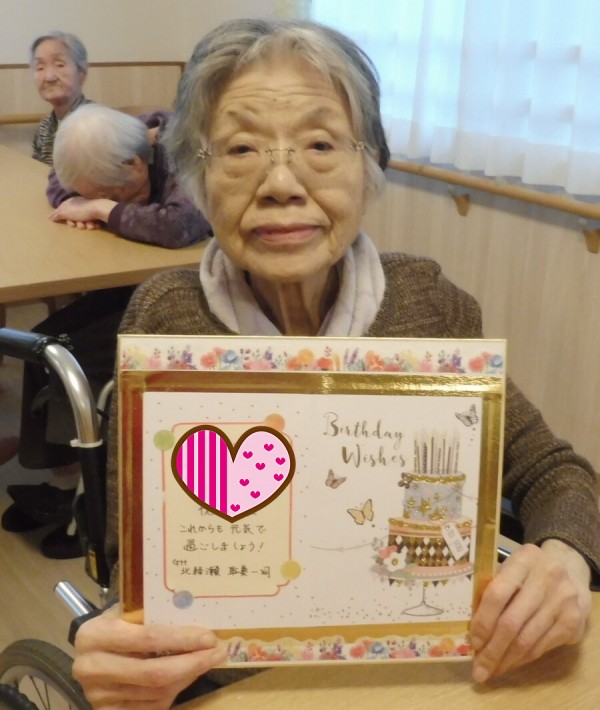 Birthday
Wishes
これからも 元気で
過ごしましょう!
北綾瀬 職員一同